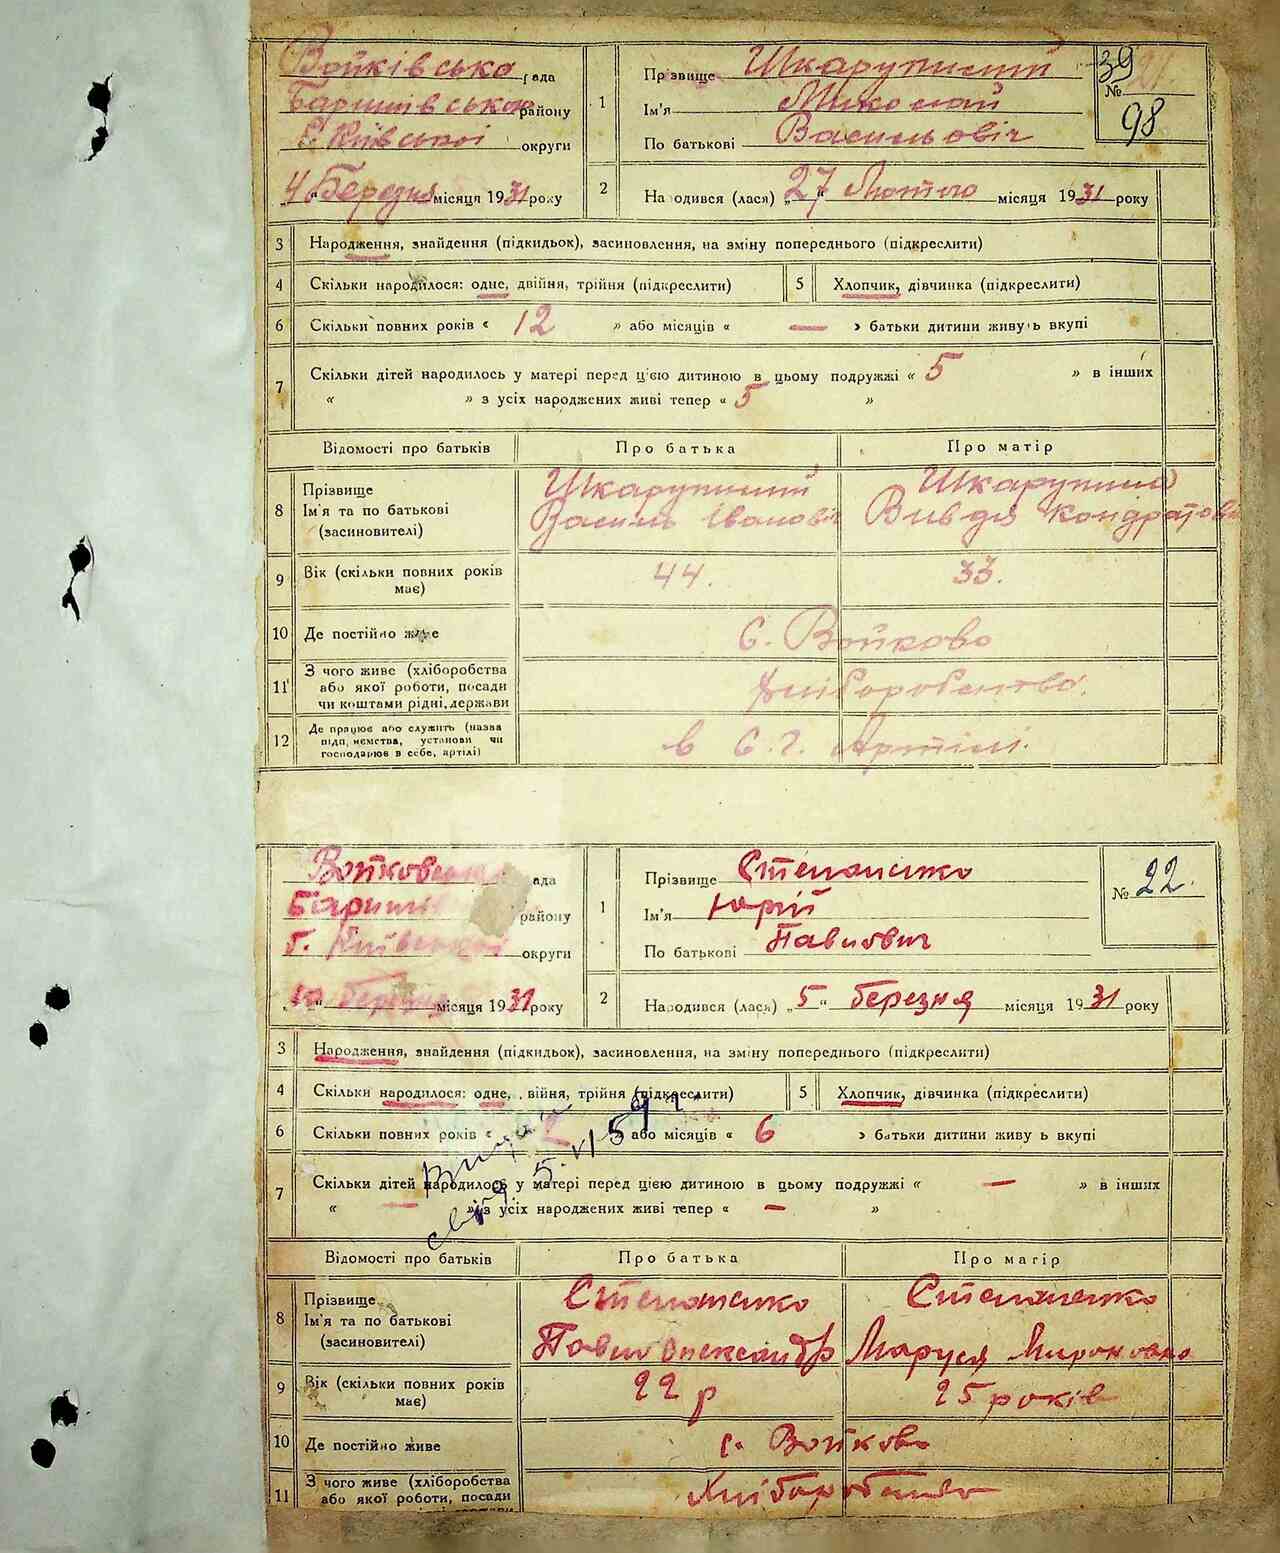 Войківсько рада
Баришівського району
Київської округи
4 „ Березня місяця 1931 року
1
Прізвище Шкарупитий
Ім'я Миколай
По батькові Васильовіч
39
№ 21
98
2 Народився (лася) „ 27 “ Лютого місяця 1931 року
3 Народження, знайдення (підкидьок), засиновлення, на зміну попереднього (підкреслити)
4 Скільки народилося: одне, двійня, трійня (підкреслити) 5 Хлопчик, дівчинка (підкреслити)
6 Скільки повних років « 12 » або місяців « — » батьки дитини живуть вкупі
7 Скільки дітей народилось у матері перед цією дитиною в цьому подружжі « 5 » в інших
« » з усіх народжених живі тепер « 5 »
Відомості про батьків Про батька Про матір
8 Прізвище
Ім'я та по батькові
(засиновителі)
Шкарупитий
Василь Іванович
Шкарупита
Вивдя Кондратовн
9 Вік (скільки повних років
має)
44. 33.
10 Де постійно живе с. Войково
11 З чого живе (хліборобства
або якої роботи, посади
чи коштами рідні, держави
Хліборобство.
12 Де працює або служить (назва
підприємства, установи чи
господарює в себе, артілі)
в С.г. Артілі.
рада
району
Київської округи
10 „ березня місяця 1931 року
1
Прізвище Степаненко
Ім'я Юрій
По батькові Павлович
№ 22.
2 Народився (лася) „ 5 “ березня місяця 1931 року
3 Народження, знайдення (підкидьок), засиновлення, на зміну попереднього (підкреслити)
4 Скільки народилося: одне, двійня, трійня (підкреслити) 5 Хлопчик, дівчинка (підкреслити)
6 Скільки повних років « 2 » або місяців « 6 » батьки дитини живуть вкупі
7 Скільки дітей народилось у матері перед цією дитиною в цьому подружжі « — » в інших
« — » із усіх народжених живі тепер « — »
Відомості про батьків Про батька Про матір
8 Прізвище
Ім'я та по батькові
(засиновителі)
Степаненко
Павло Олександр
Степаненко
Маруся Мироновна
9 Вік (скільки повних років
має)
22 р 25 років
10 Де постійно живе с. Войково
11 З чого живе (хліборобства
або якої роботи, посади
Хліборобство